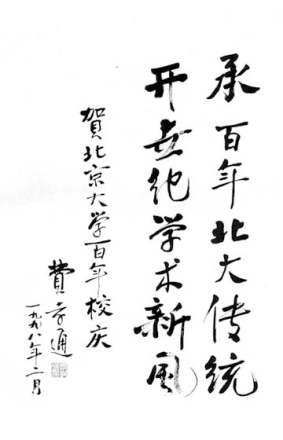 承百年北大传统
开世纪学术新风
賀北京大学百年校庆
費孝通
一九九八年二月